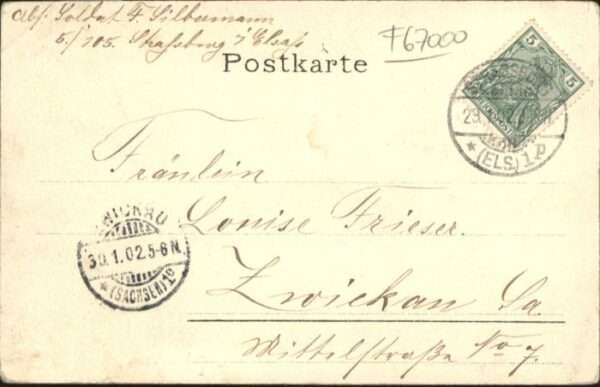 Abs: Soldat F. Silbermann
5./105. Strassburg i/Elsass
F67000
Postkarte
5 5
29.
(ELS.) 1 p
Fräulein
Louise Frieser.
ZWICKAU
30.1.02.5-8N.
* (SACHSEN) 1p
Zwickau Sa
Mittelstraße No 7.